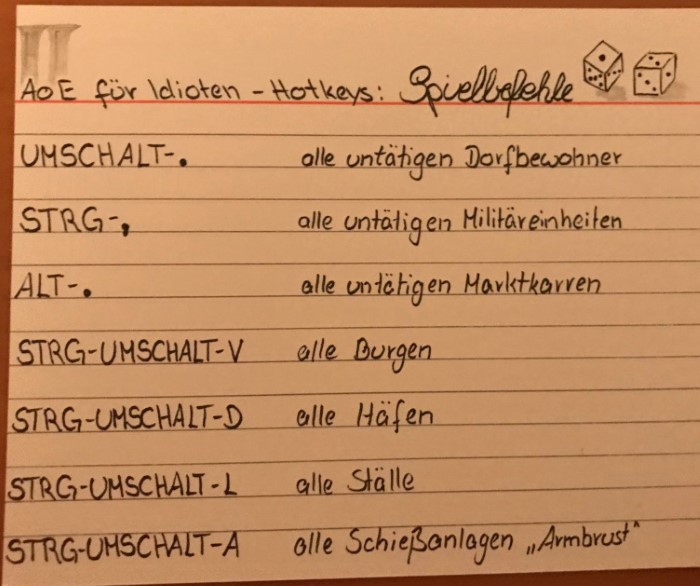 II
AoE für Idioten - Hotkeys: Spielbefehle
UMSCHALT-. alle untätigen Dorfbewohner
STRG-, alle untätigen Militäreinheiten
ALT-. alle untätigen Marktkarren
STRG-UMSCHALT-V alle Burgen
STRG-UMSCHALT-D alle Häfen
STRG-UMSCHALT-L alle Ställe
STRG-UMSCHALT-A alle Schießanlagen „Armbrust"